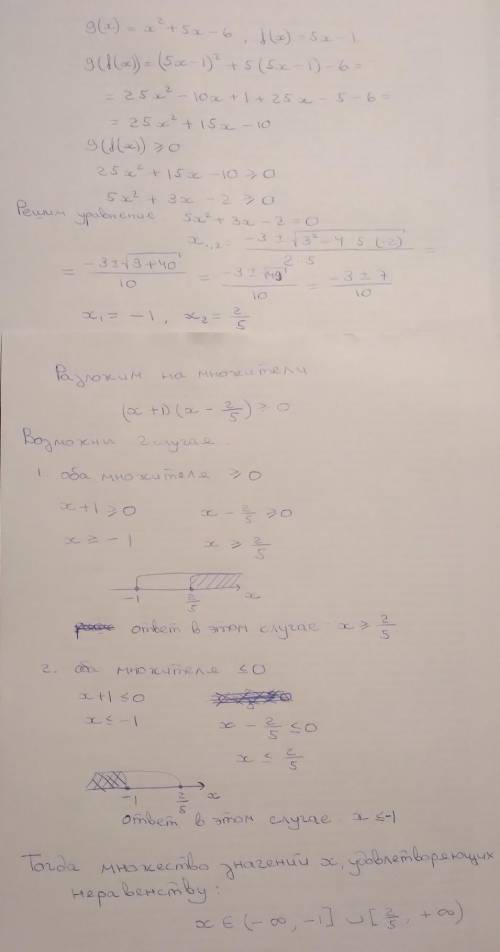 g(x) = x² + 5x - 6, f(x) = 5x - 1
g(f(x)) = (5x-1)² + 5(5x-1) - 6 =
= 25x² - 10x + 1 + 25x - 5 - 6 =
= 25x² + 15x - 10
g(f(x)) ⩾ 0
25x² + 15x - 10 ⩾ 0
5x² + 3x - 2 ⩾ 0
Решим уравнение 5x² + 3x - 2 = 0
x₁,₂ = (-3 ± √(3² - 4·5·(-2)))/(2·5) =
= (-3 ± √(9 + 40))/10 = (-3 ± √49)/10 = (-3 ± 7)/10
x₁ = -1, x₂ = 2/5
Разложим на множители
(x + 1)(x - 2/5) ⩾ 0
Возможны 2 случая.
1. оба множителя ⩾ 0
x + 1 ⩾ 0 x - 2/5 ⩾ 0
x ⩾ -1 x ⩾ 2/5
-1 2/5 x
ответ в этом случае x ⩾ 2/5
2. оба множителя ≤ 0
x + 1 ≤ 0
x ≤ -1 x - 2/5 ≤ 0
x ≤ 2/5
-1 2/5 x
ответ в этом случае x ≤ -1
Тогда множество значений x, удовлетворяющих
неравенству:
x ∈ (-∞, -1] ∪ [2/5, +∞)